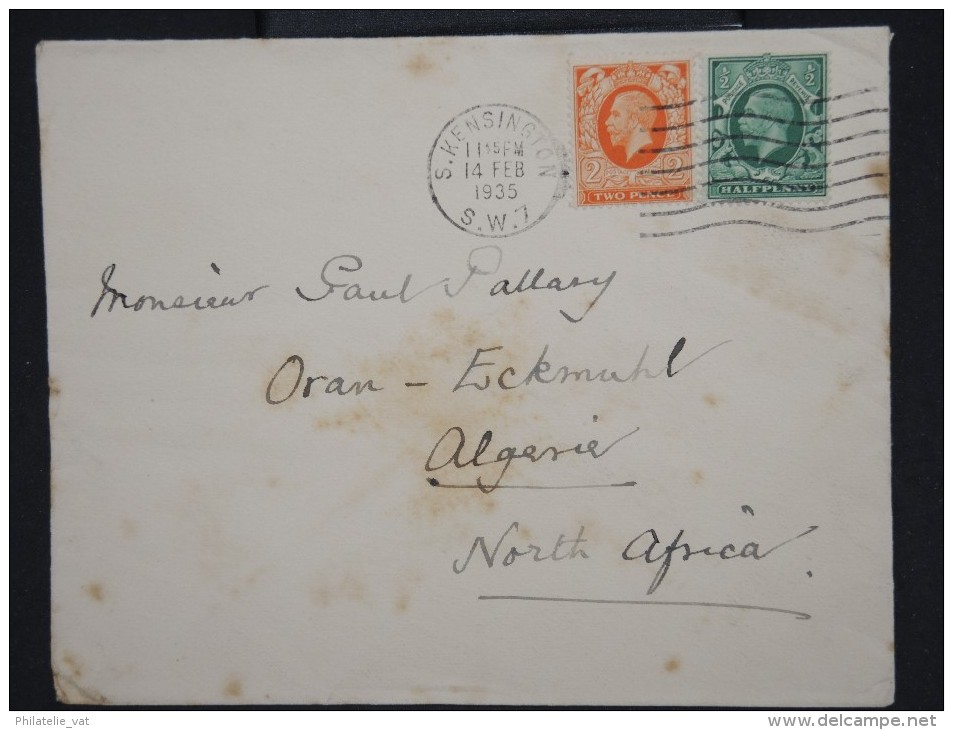 S. KENSINGTON
11 15 PM
14 FEB
1935
S.W.7
2 2
TWO PENCE
½ ½
POSTAGE REVENUE
HALFPENNY
Monsieur Paul Pallary
Oran - Eckmuhl
Algerie
North Africa.
Philatelie_vat
www.delcampe.net